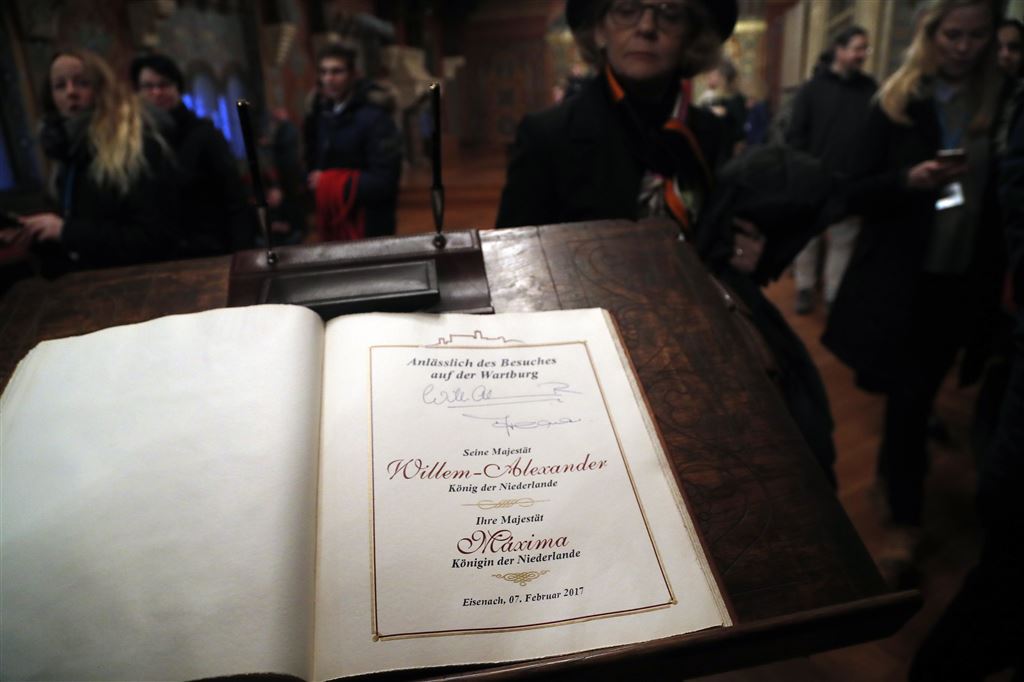 Anlässlich des Besuches
auf der Wartburg
Seine Majestät
Willem-Alexander
König der Niederlande
Ihre Majestät
Máxima
Königin der Niederlande
Eisenach, 07. Februar 2017